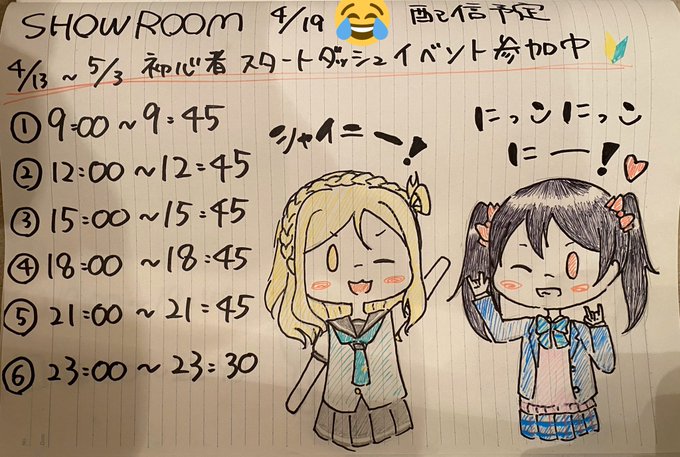 SHOWROOM 4/19 配信予定
4/13 ~ 5/3 初心者 スタートダッシュイベント参加中
① 9:00 ~ 9:45
② 12:00 ~ 12:45
③ 15:00 ~ 15:45
④ 18:00 ~ 18:45
⑤ 21:00 ~ 21:45
⑥ 23:00 ~ 23:30
シャイニー!
にっこにっこ
にー!